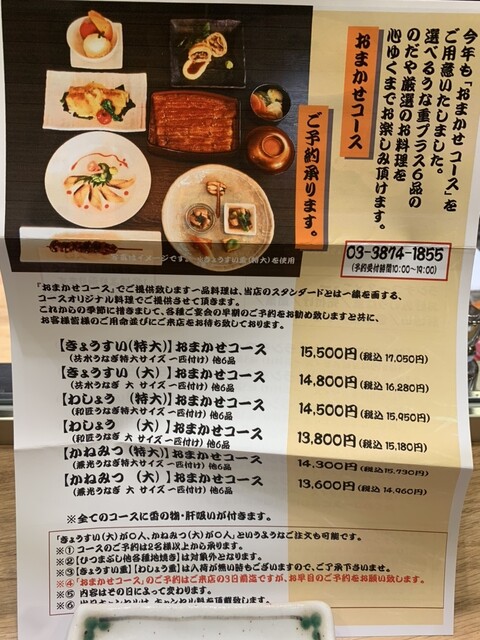 今年も「おまかせコース」を
ご用意いたしました。
選べるうな重プラス6品の
のだや厳選のお料理を
心ゆくまでお楽しみ頂けます。
おまかせコース
ご予約承ります。
03-3874-1855
(予約受付時間10:00〜19:00)
写真はイメージです。※きょうすい重(特大)を使用
「おまかせコース」でご提供致します一品料理は、当店のスタンダードとは一線を画する、
コースオリジナル料理でご提供させて頂きます。
これからの季節に措きまして、各種ご宴会の早期のご予約をお勧め致しますと共に、
お客様皆様のご用命並びにご来店をお待ち致しております。
【きょうすい(特大)】おまかせコース 15,500円(税込 17,050円)
(共水うなぎ特大サイズ 一匹付け) 他6品
【きょうすい (大) 】おまかせコース 14,800円(税込 16,280円)
(共水うなぎ 大 サイズ 一匹付け) 他6品
【わしょう (特大)】おまかせコース 14,500円(税込 15,950円)
(和匠うなぎ特大サイズ 一匹付け) 他6品
【わしょう (大) 】おまかせコース 13,800円(税込 15,180円)
(和匠うなぎ 大 サイズ 一匹付け) 他6品
【かねみつ (特大)】おまかせコース 14,300円(税込 15,730円)
(兼光うなぎ特大サイズ 一匹付け) 他6品
【かねみつ (大) 】おまかせコース 13,600円(税込 14,960円)
(兼光うなぎ 大 サイズ 一匹付け) 他6品
※全てのコースに香の物・肝吸いが付きます。
「きょうすい(大)が〇人、かねみつ(大)が〇人」というようなご注文も可能です。
※① コースのご予約は2名様以上から承ります。
※② 【ひつまぶし他各種地焼き】は対象外となります。
※③ 【きょうすい重】【わしょう重】は入荷が無い時もございますので、ご了承下さいませ。
※④ 「おまかせコース」のご予約はご来店の3日前迄ですが、お早目のご予約をお願い致します。
※⑤ 内容はその日によって変わります。
※⑥ 当日キャンセルは、キャンセル料を頂戴致します。